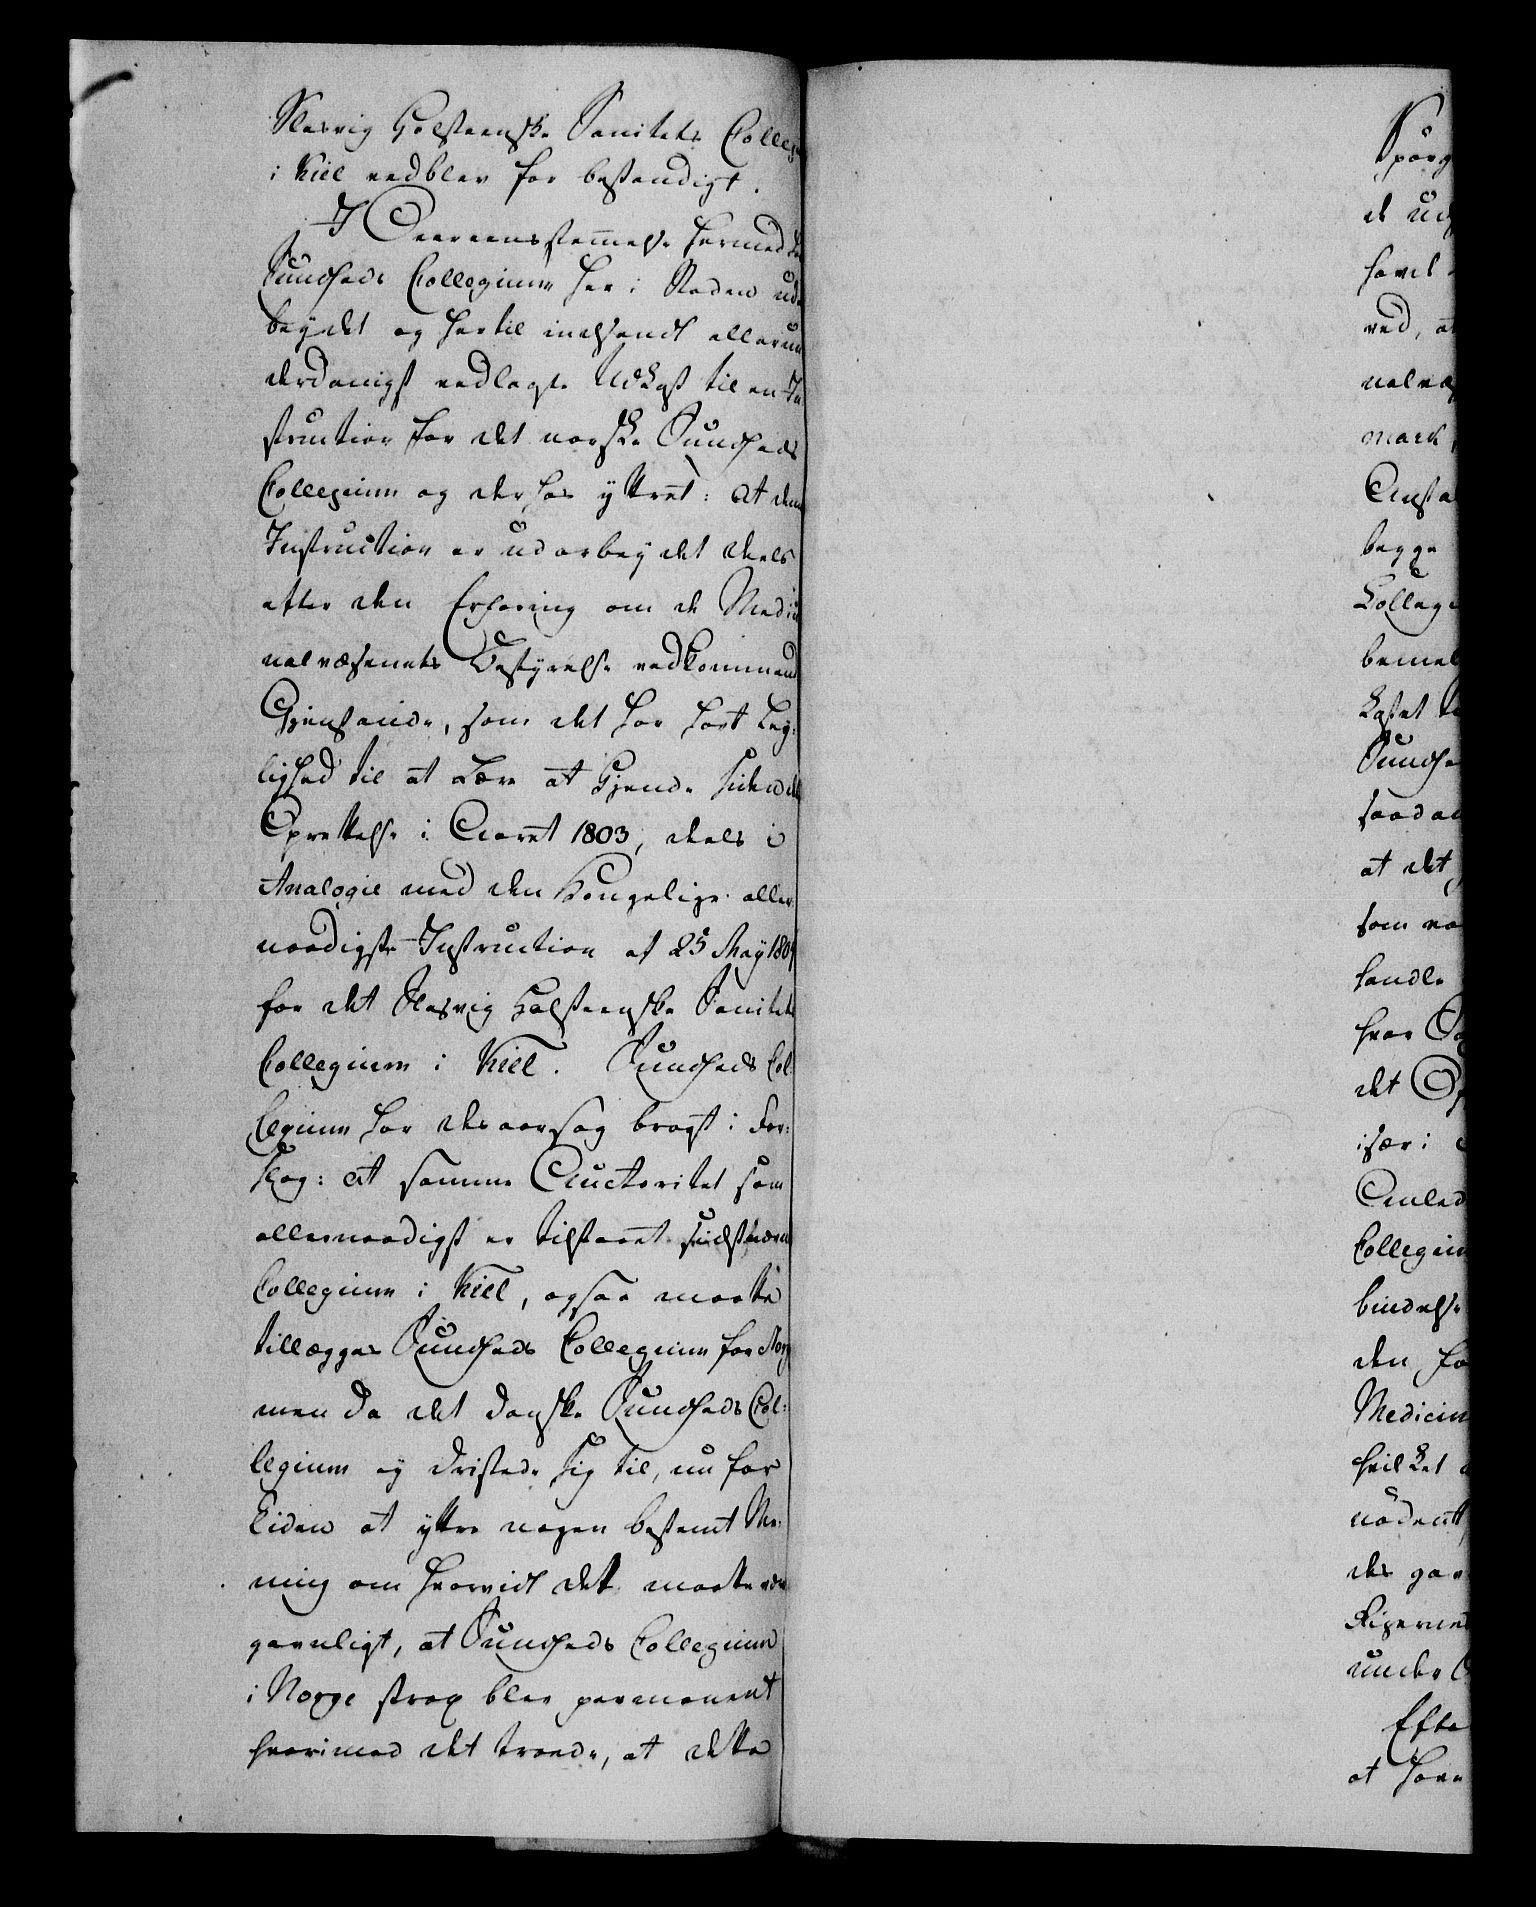 Slesvig Holsteenske Sanitets Colleg
i Kiel vedblev for bestandigt.
I Overeensstemmelse hermed har
Sundheds Collegium her i Staden ud
beydet og hertil indsendt allerun
derdanigst vedlagte Udkast til en In
struction for det norske Sundheds
Collegium og derhos yttret: at denne
Instruction er udarbeydet deels
efter den Erfaring om de Medici
nalvæsenets Bestyrelse vedkommende
Gjenstande, som det har havt Lej:
lighed til at lære at kjende siden dets
Oprettelse i Aaret 1803, deels i
Analogie med den Kongelige aller
naadigste Instruction af 25 May 180
for det Slesvig Holsteenske Sanitets
Collegium i Kiel. Sundheds Col
legium har desaarsag bragt i For:
slag: at samme Auctoritet som
allernaadigst er tilstaaet sidstnævnte
Collegium i Kiel, ogsaa maatte
tillægges Sundheds Collegium for Norge
men da det danske Sundheds Col:
legium ey dristede sig til, nu for
Tiden at yttre nogen bestemt Me:
ning om hvorvidt det maatte være
gavnligt, at Sundheds Collegium
i Norge strax blev permanent
hvorimod det troede, at dette
Spörg
de ud
havt
ved, at
nalvæ
mark,
Ansta
begge
Colleg
bemel
kastet
Sundhe
saadan
at det
som
handle
hvor
det
især i
Anled
Collegium
bindelse
den
Medicin
hvilket
nödentt
des
Rigerne
under
Efte
at have